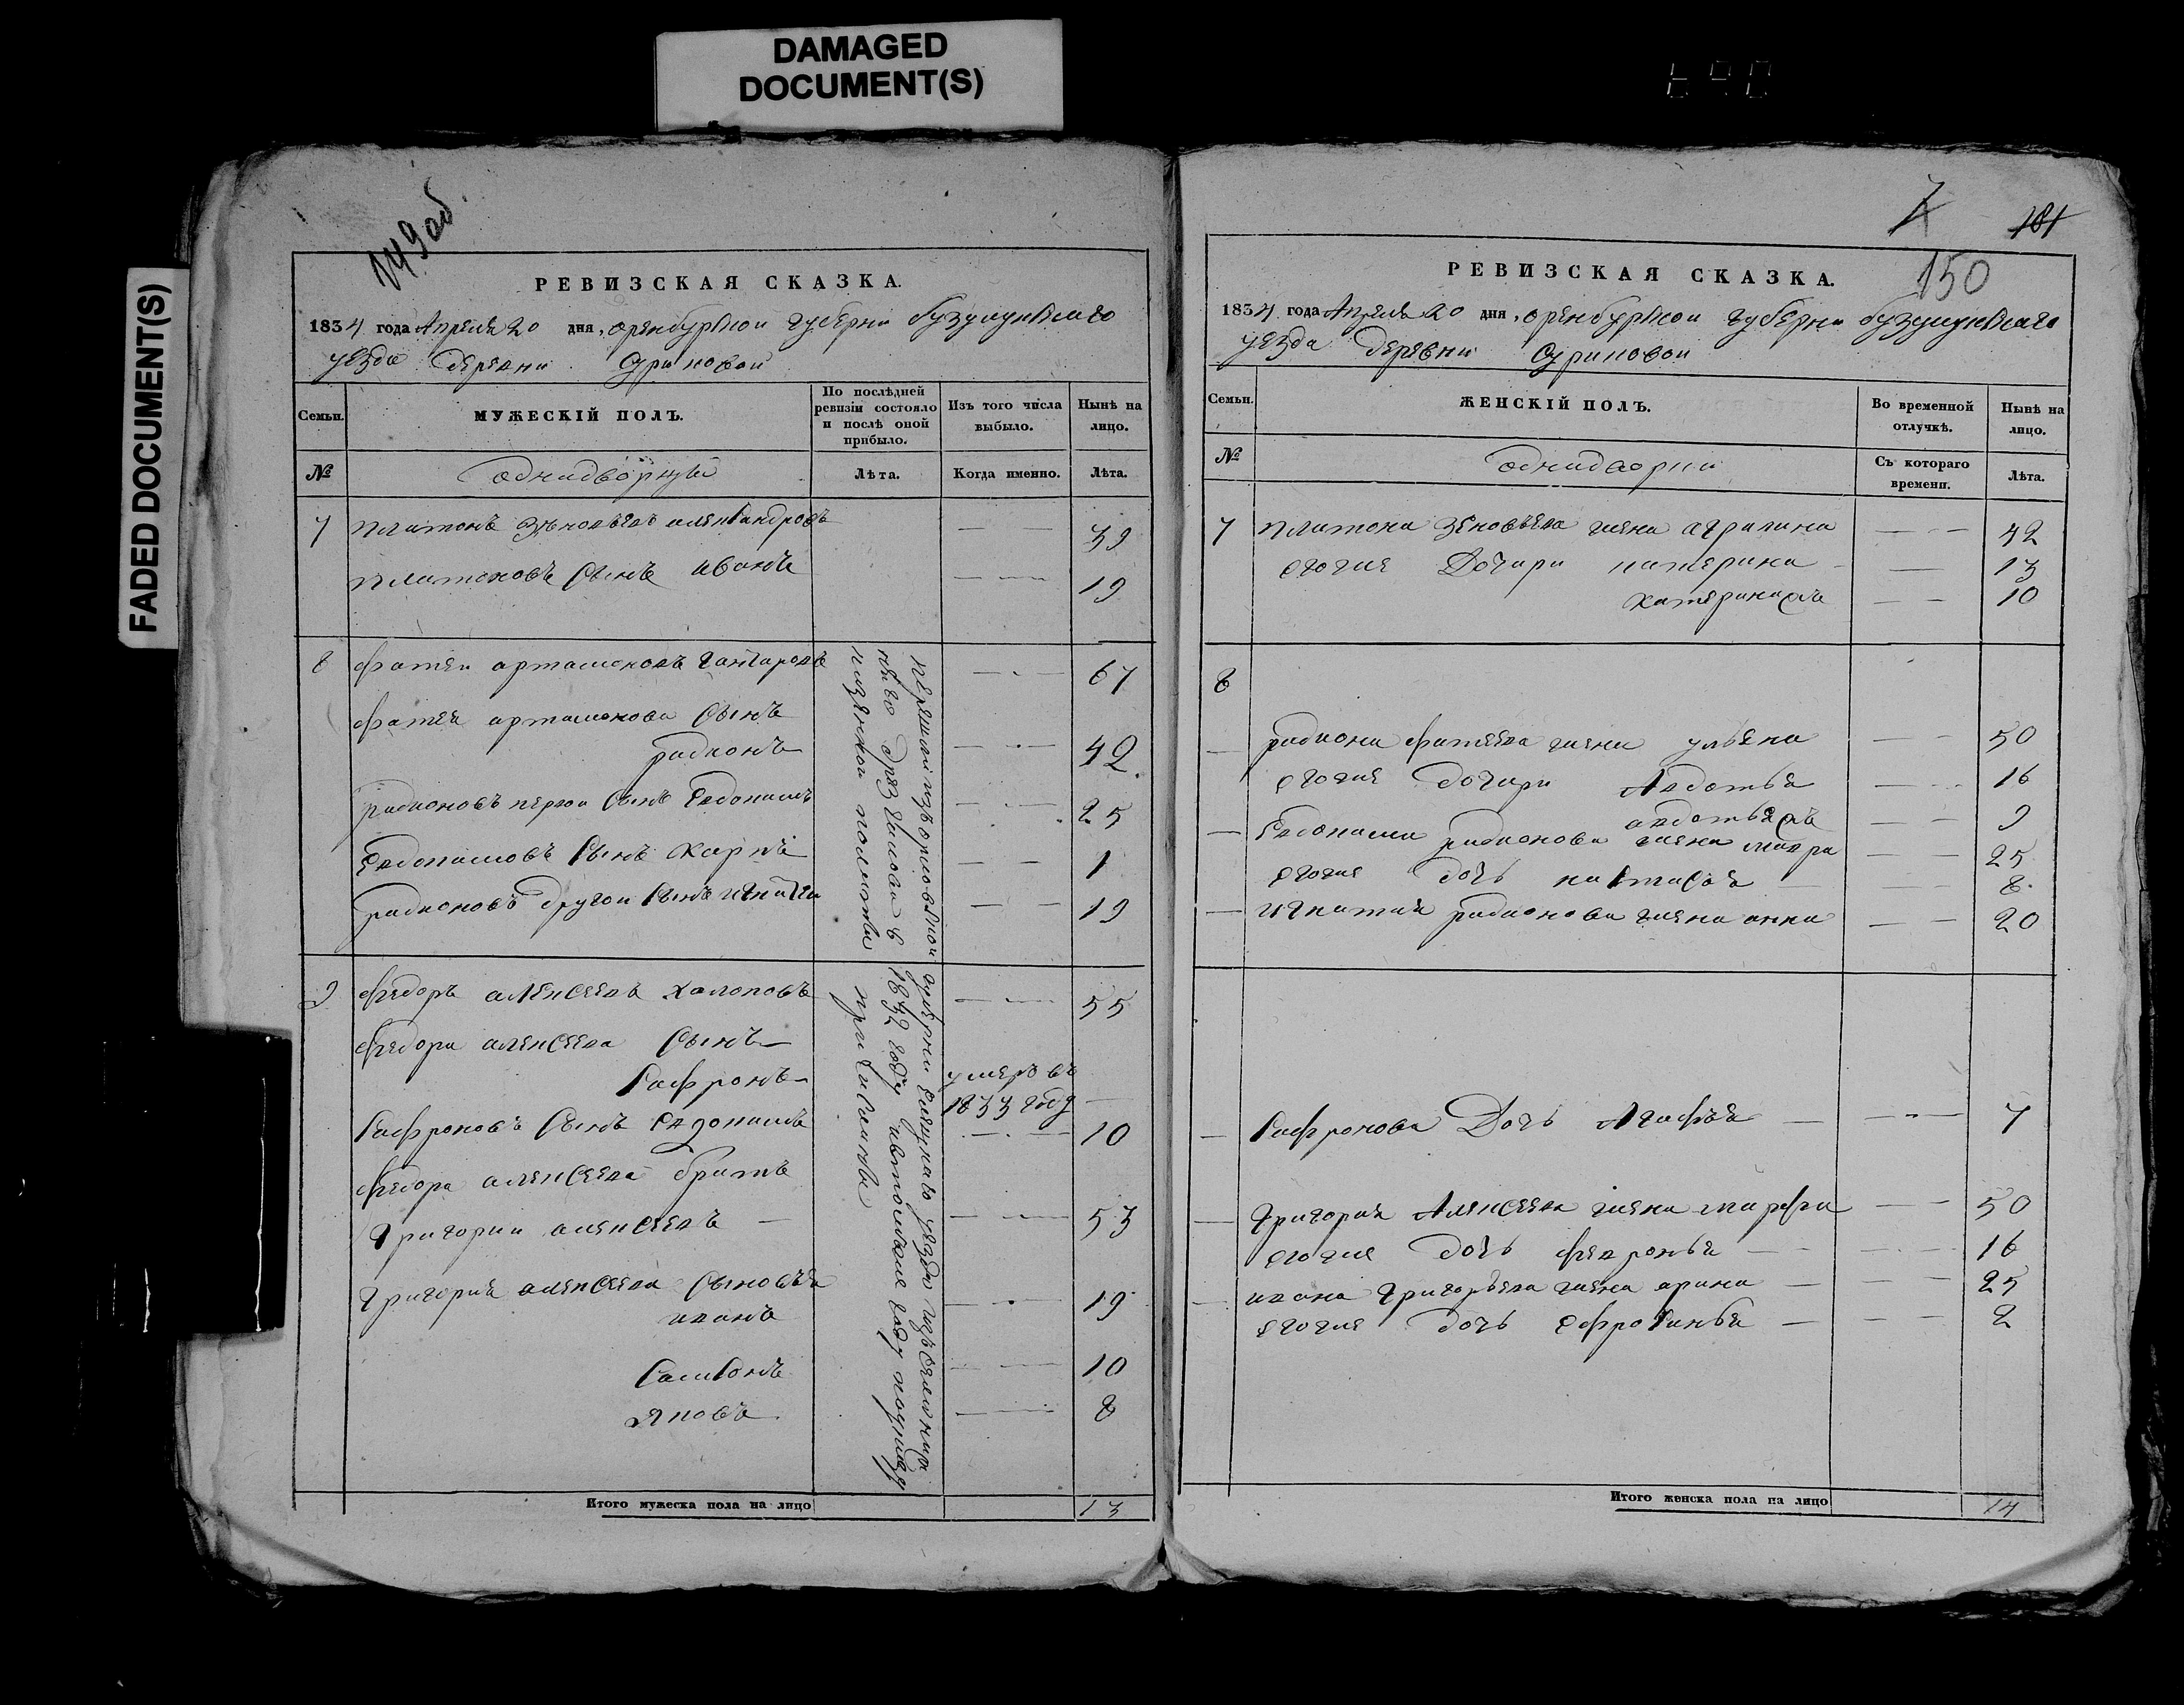 DAMAGED
DOCUMENT(S)
FADED DOCUMENT(S)
149 об
РЕВИЗСКАЯ СКАЗКА.
1834 года Апреля 20 дня, оренбурской губерни бузулукскаго
уезда деревни Суриковой
Семьи. МУЖЕСКІЙ ПОЛЪ. По послѣдней ревизіи состояло и послѣ оной прибыло. Изъ того числа выбыло. Нынѣ на лицо.
№ однидворцы Лѣта. Когда именно. Лѣта.
7 платонъ зѣновьевъ александровъ 39
платоновъ сынъ иванъ 19
8 фатей артамоновъ 67
фатея артамонова сынъ
радионъ 42
радионовъ первой сынъ Евдокимъ 25
Евдокимовъ сынъ карпъ 1
радионовъ другой сынъ игнатей 19
9 федоръ алексеевъ халоповъ 55
федора алексеева сынъ
сафронъ умеръ въ
1833 году
сафроновъ сынъ евдокимъ 10
федора алексеева братъ
григории алексеевъ 53
григорья алексеева сыновья
иванъ 19
самсонъ 10
яковъ 8
перешли изъ орловской губерни елецкаго уезда изъ
него 1832 году
Итого мужеска пола на лицо 13
7
181
150
РЕВИЗСКАЯ СКАЗКА.
1834 года Апреля 20 дня, оренбурской губерни бузулукскаго
уезда деревни Суриковой
Семьи. ЖЕНСКІЙ ПОЛЪ. Во временной отлучкѣ. Нынѣ на лицо.
№ однидворки Съ котораго времени. Лѣта.
7 платона зеновьева жена аграпина 42
егоже дочери катерина 13
катерина жъ 10
8
радиона фатеева жена ульяна 50
егоже дочери Авдотья 16
авдотья жъ 9
Евдокима радионова жена мавра 25
егоже дочь настасья 8
игнатья радионова жена анна 20
сафронова Дочь Агафья 7
григорья Алексеева жена марфа 50
егоже дочь февронья 16
ивана григорьева жена арина 25
егоже дочь ефросинья 2
Итого женска пола на лицо 14